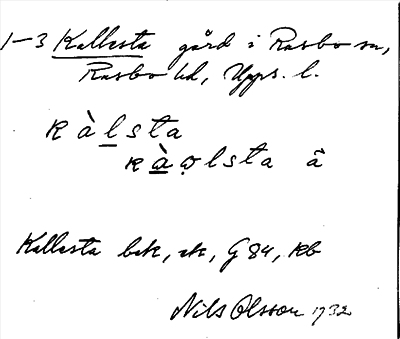 1-3 Kallesta gård i Rasbo sn,
Rasbo hd, Upps. l.
kàlsta
kàωlsta â
Kallesta bek, ek, G 84, Kb
Nils Olsson 1932